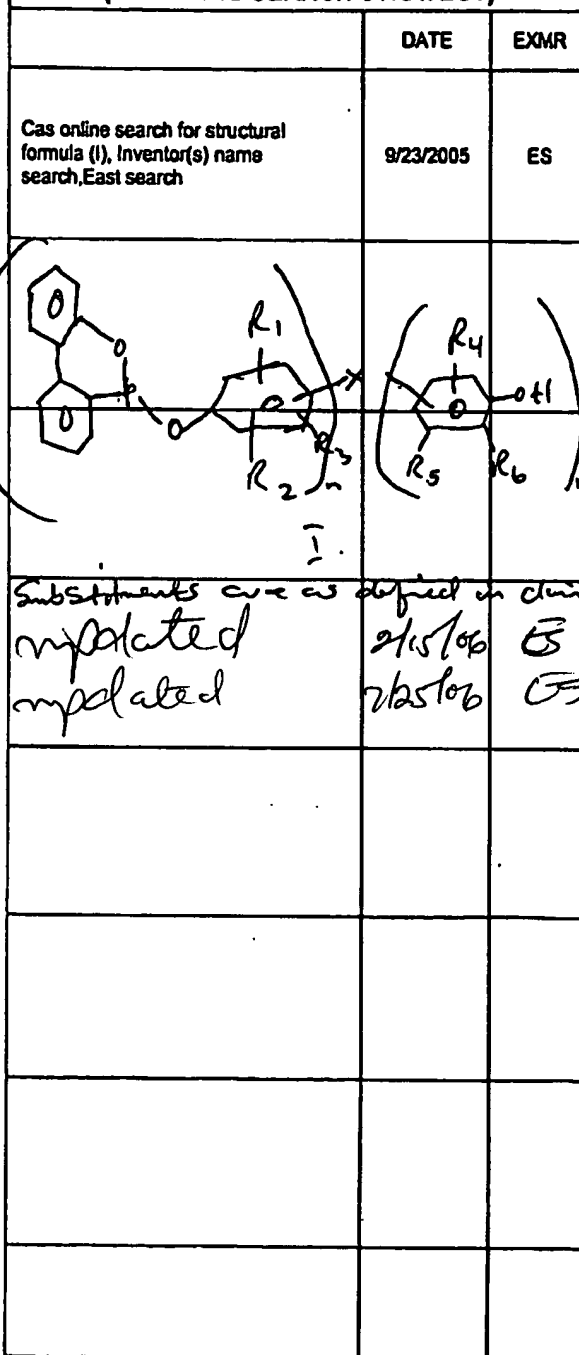 DATE EXMR
Cas online search for structural
formula (I), Inventor(s) name
search,East search
9/23/2005 ES
O O P O O R1 R2 R3 n X R4 O OH R5 R6
I.
Substituents are as defined in
updated 2/15/06 ES
updated 7/25/06 ES